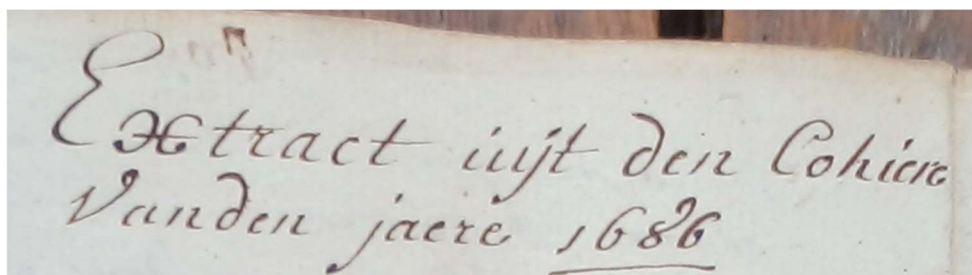 Extract uijt den Cohiere
Vanden jaere 1686